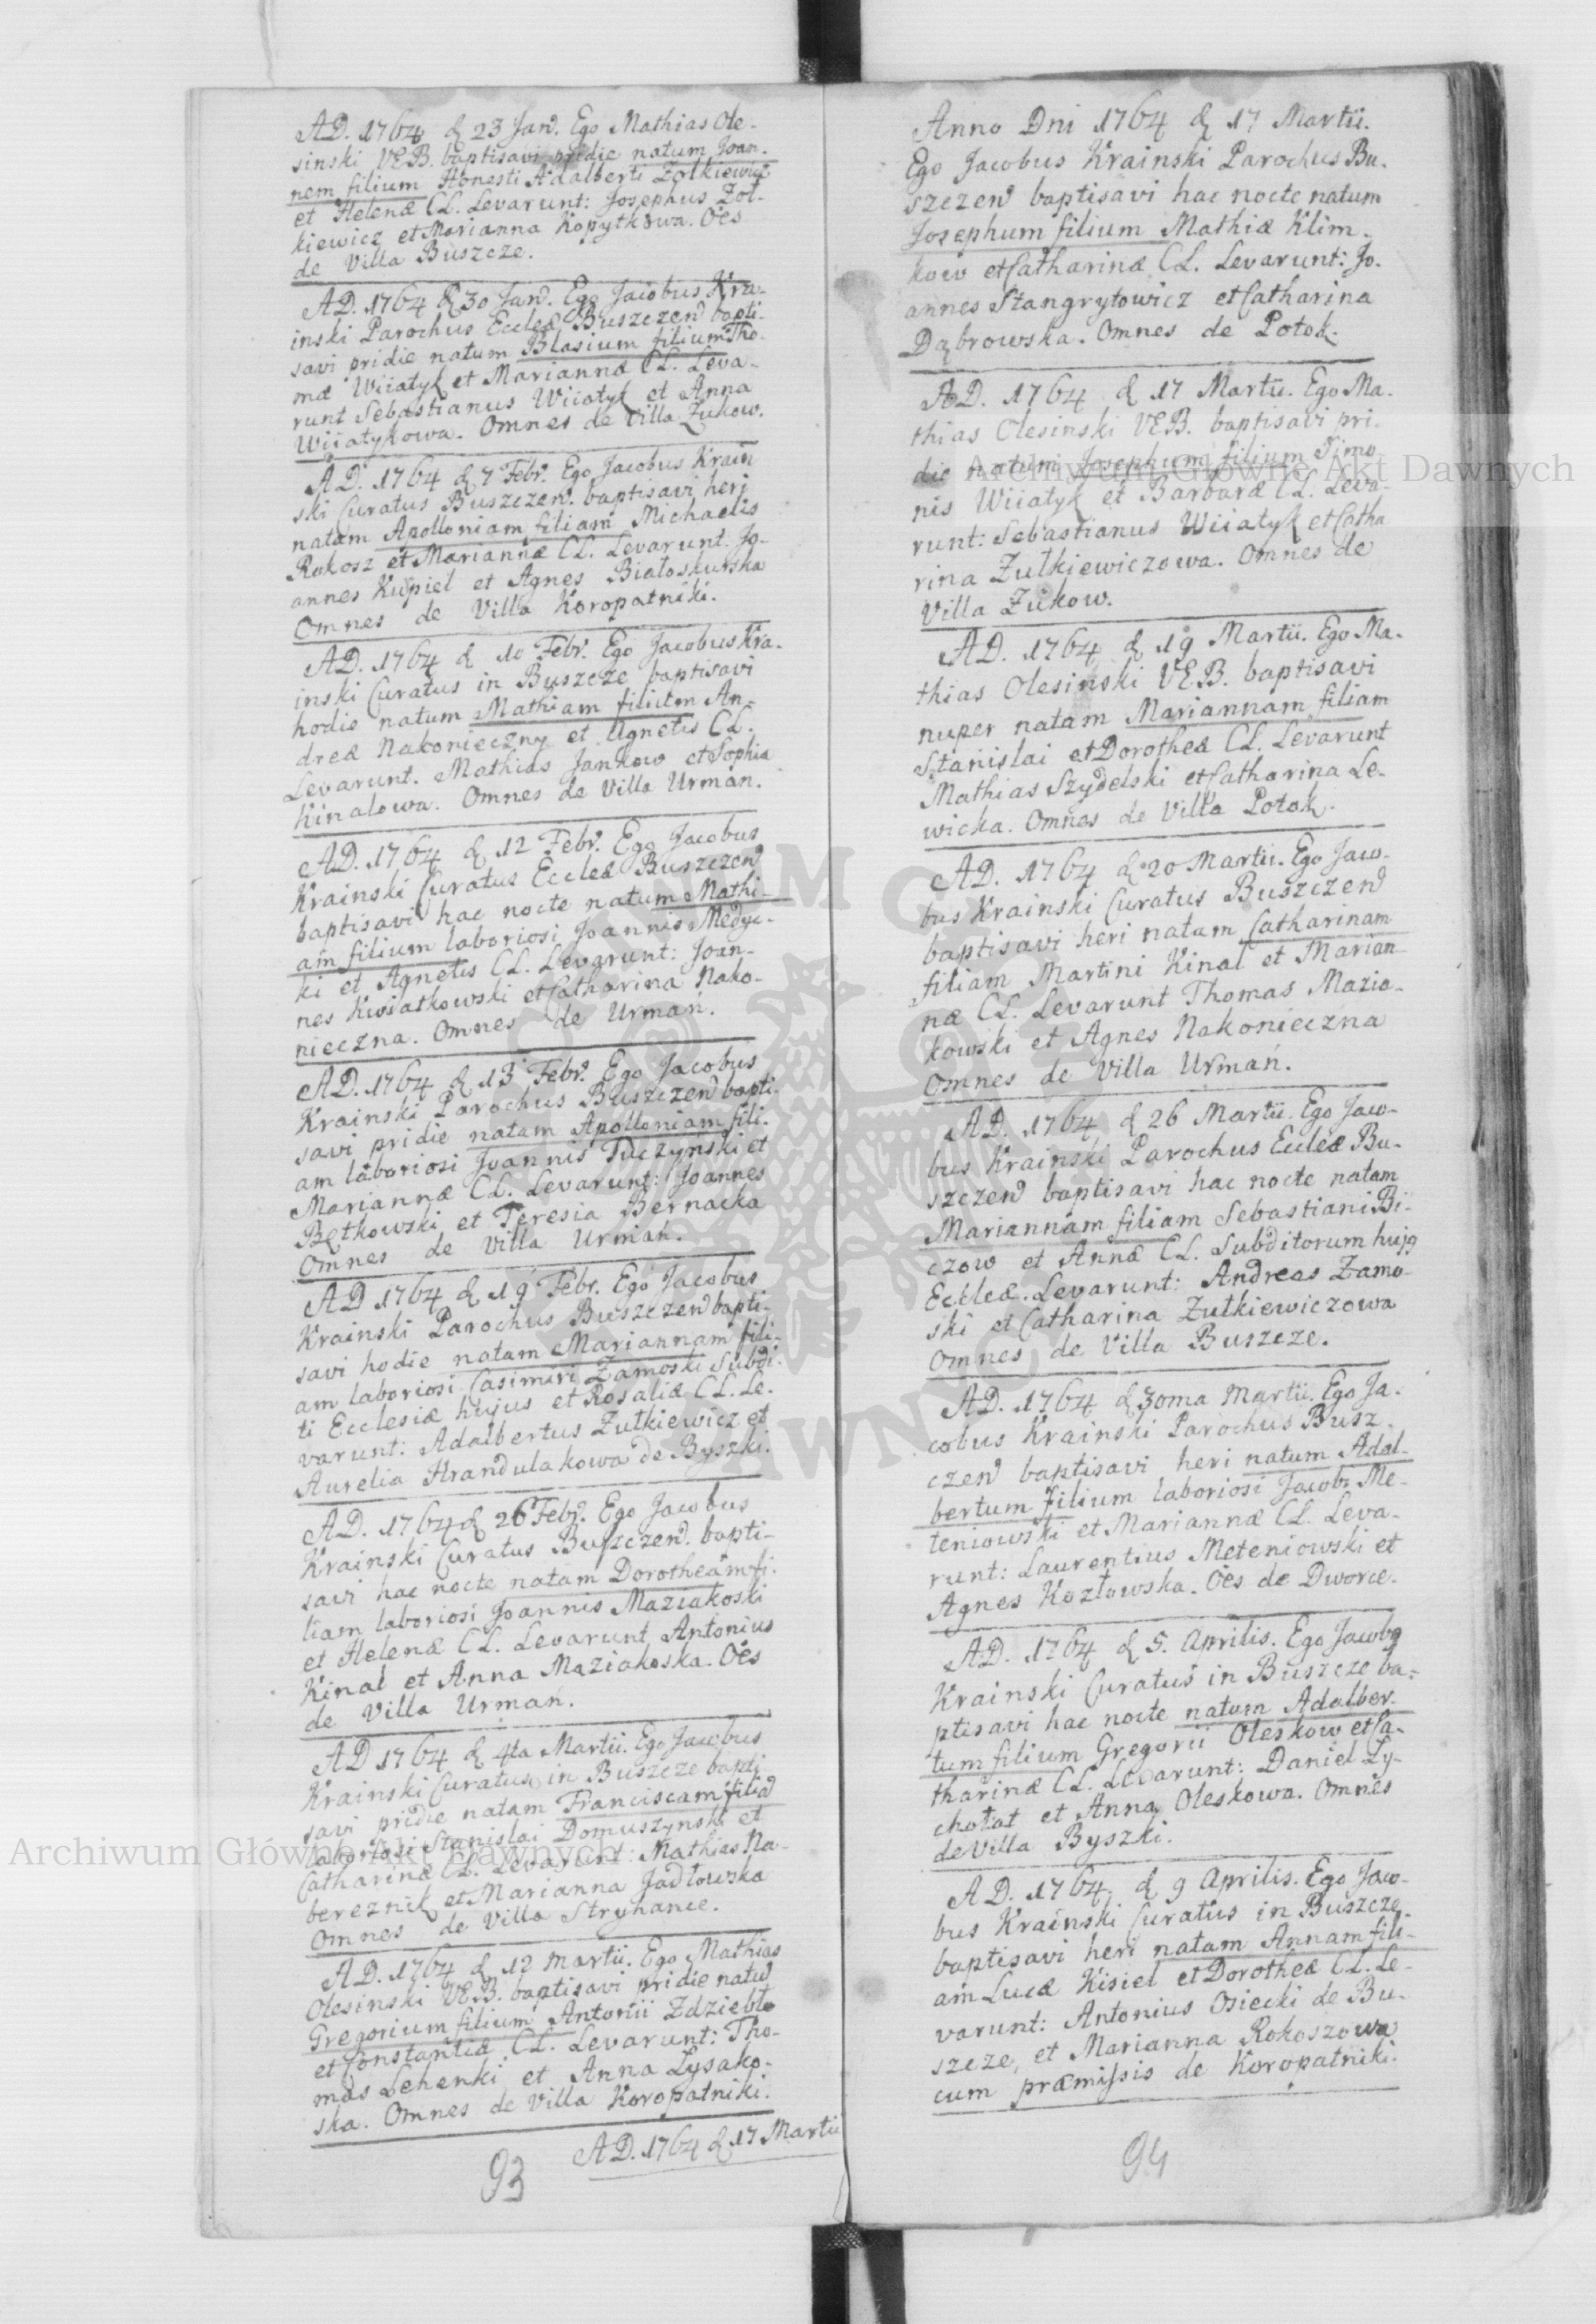 AD. 1764 d 23 Jan. Ego Mathias Ole-
sinski VEB. baptisavi pridie natum Joan-
nem filium Honesti Adalberti Zolkiewicz
et Helenæ CL. Levarunt: Josephus Zoł-
kiewicz et Marianna Kopytkowa. Oēs
de Villa Buszcze.
AD. 1764 d 30 Jan. Ego Jacobus Kra-
inski Parochus Eccleæ Buszczen bapti-
savi pridie natum Blasium filium Tho-
mæ Wiiatyk et Mariannæ CL. Leva-
runt Sebastianus Wiiatyk et Anna
Wiiatykowa. Omnes de Villa Zukow.
AD. 1764 d 7 Febr. Ego Jacobus Krain
ski Curatus Buszczen. baptisavi heri
natam Apolloniam filiam Michaelis
Rokosz et Mariannæ CL. Levarunt. Jo-
annes Kupiel et Agnes Białoskurska
Omnes de Villa Koropatniki.
AD. 1764 d 10 Febr. Ego Jacobus Kra-
inski Curatus in Buszcze baptisavi
hodie natum Mathiam filium An-
dreæ Nakonieczny et Agnetis CL.
Levarunt. Mathias Jankow et Sophia
Kinalowa. Omnes de Villa Urmań.
AD. 1764 d 12 Febr. Ego Jacobus
Krainski Curatus Eccleæ Buszczen
baptisavi hac nocte natum Mathi-
am filium laboriosi Joannis Medyc-
ki et Agnetis CL. Levarunt: Joan-
nes Kwiatkowski et Catharina Nako-
nieczna. Omnes de Urmań.
AD. 1764 d 13 Febr. Ego Jacobus
Krainski Parochus Buszczen bapti-
savi pridie natam Apolloniam fili-
am laboriosi Joannis Tuczyński et
Mariannæ CL. Levarunt: Joannes
Bętkowski et Teresia Bernacka
Omnes de Villa Urmań.
AD 1764 d 19 Febr. Ego Jacobus
Krainski Parochus Buszczen bapti-
savi hodie natam Mariannam fili-
am laboriosi Casimiri Zamoski Subdi-
ti Ecclesiæ hujus et Rosaliæ CL. Le-
varunt: Adalbertus Zułkiewicz et
Aurelia Hrandulakowa de Byszki.
AD. 1764 d 26 Febr. Ego Jacobus
Krainski Curatus Buszczen. bapti-
savi hac nocte natam Dorotheam fi-
liam laboriosi Joannis Maziakoski
et Helenæ CL. Levarunt Antonius
Kinal et Anna Maziakoska. Oēs
de Villa Urmań.
AD 1764 d 4ta Martii. Ego Jacobus
Krainski Curatus in Buszcze bapti
savi pridie natam Franciscam filia
laboriosi Stanislai Domuszynski et
Catharinæ CL. Levarunt: Mathias Na-
bereznik et Marianna Jadłowska
Omnes de Villa Stryhance.
AD. 1764 d 12 Martii. Ego Mathias
Olesinski VEB. baptisavi pridie natū
Gregorium filium Antonii Zdziebło
et Constantiæ CL. Levarunt: Tho-
mas Lehenki et Anna Łysako-
ska. Omnes de Villa Koropatniki.
AD. 1764 d 17 Martii
93
Anno Dni 1764 d 17 Martii.
Ego Jacobus Krainski Parochus Bu-
szczen baptisavi hac nocte natum
Josephum filium Mathiæ Klim-
kow et Catharinæ CL. Levarunt: Jo-
annes Stangrytowicz et Catharina
Dąbrowska. Omnes de Potok.
AD. 1764 d 17 Martii. Ego Ma-
thias Olesinski VEB. baptisavi pri-
die natum Josephum filium Simo
nis Wiiatyk et Barbaræ CL. Leva-
runt: Sebastianus Wiiatyk et Catha
rina Zułkiewiczowa. Omnes de
Villa Zukow.
AD. 1764 d 19 Martii. Ego Ma-
thias Olesinski VEB. baptisavi
nuper natam Mariannam filiam
Stanislai et Dorotheæ CL. Levarunt
Mathias Szydelski et Catharina Le-
wicka. Omnes de Villa Potok.
AD. 1764 d 20 Martii. Ego Jaco-
bus Krainski Curatus Buszczen
baptisavi heri natam Catharinam
filiam Martini Kinal et Marian-
næ CL. Levarunt Thomas Mazia-
kowski et Agnes Nakonieczna
Omnes de Villa Urmań.
AD. 1764 d 26 Martii. Ego Jaco-
bus Krainski Parochus Eccleæ Bu-
szczen baptisavi hac nocte natam
Mariannam filiam Sebastiani Bi-
czow et Annæ CL. Subditorum hujq
Eccleæ. Levarunt: Andreas Zamo-
ski et Catharina Zułkiewiczowa
Omnes de Villa Buszcze.
AD. 1764 d 30ma Martii. Ego Ja-
cobus Krainski Parochus Busz-
czen baptisavi heri natum Adal-
bertum filium laboriosi Jacobi Me-
teniowski et Mariannæ CL. Leva-
runt: Laurentius Meteniowski et
Agnes Kozłowska. Oēs de Dworce.
AD. 1764 d 5. Aprilis. Ego Jacobq
Krainski Curatus in Buszcze ba-
ptisavi hac nocte natum Adalber-
tum filium Gregorii Oleskow et Ca-
tharinæ CL. Levarunt: Daniel Ły-
chołat et Anna Oleskowa. Omnes
de Villa Byszki.
AD. 1764 d 9 Aprilis. Ego Jaco-
bus Krainski Curatus in Buszcze
baptisavi heri natam Annam fili-
am Lucæ Kisiel et Dorotheæ CL. Le-
varunt: Antonius Osiecki de Bu-
szcze, et Marianna Rokoszowa
cum præmissis de Koropatniki.
94
Archiwum Główne Akt Dawnych
Archiwum Główne Akt Dawnych